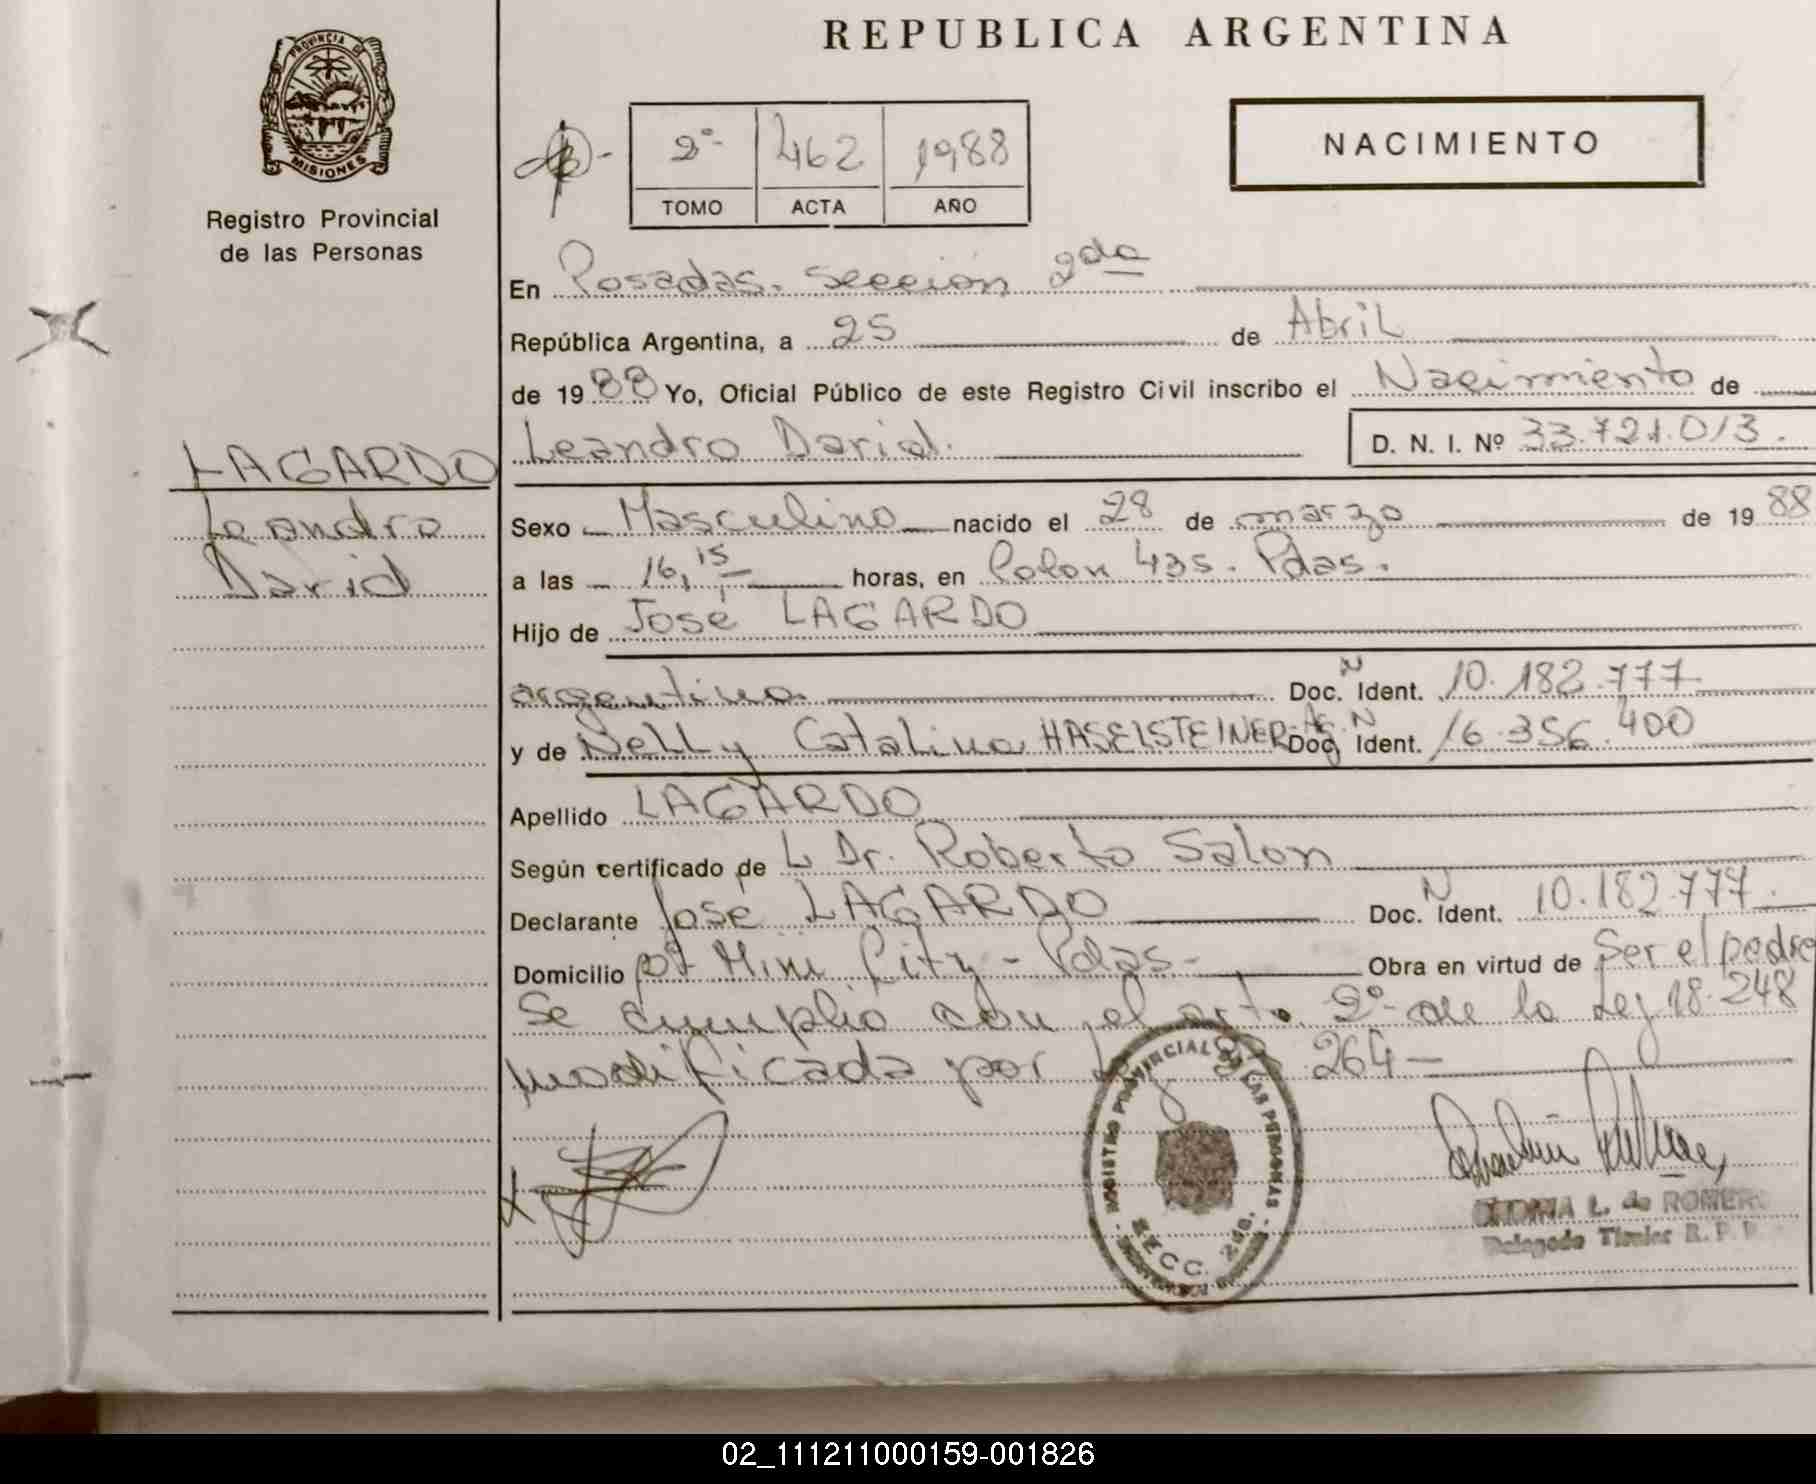 REPUBLICA ARGENTINA
PROVINCIA DE
MISIONES
Registro Provincial
de las Personas
2º- 462 1988
TOMO ACTA AÑO
NACIMIENTO
En Posadas. Sección 2da
República Argentina, a 25 de Abril
de 1988 Yo, Oficial Público de este Registro Civil inscribo el Nacimiento de
LAGARDO
Leandro
David
Leandro David. D. N. I. Nº 33.721.013.
Sexo Masculino nacido el 28 de marzo de 1988
a las 16,15 horas, en Colon 435. Pdas.
Hijo de José LAGARDO
argentino Doc. Ñ Ident. 10.182.777
y de Nelly Catalina HASELSTEINER Ag. Doc. N Ident. 16.356.400
Apellido LAGARDO
Según certificado de L Dr. Roberto Salon
Declarante José LAGARDO Doc. N Ident. 10.182.777.
Domicilio Mini City - Pdas- Obra en virtud de Ser el padre
Se cumplió con el arto. 2º- de la Ley 18.248
modificada por Ley 264
REGISTRO PROVINCIAL DE LAS PERSONAS
SECC. 2da.
L. de ROMERO
Delegado Titular R. P. P.
02_111211000159-001826